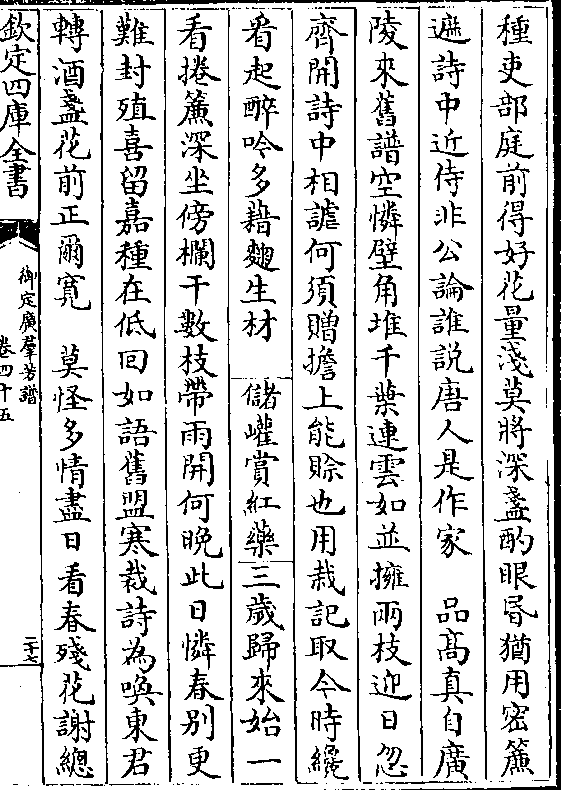 種吏部庭前得好花量淺莫將深盞酌眼昏猶用密簾
遮詩中近侍非公論誰説唐人是作家　品髙真自廣
陵來舊譜空憐壁角堆千葉連雲如並擁兩枝迎日忽
齊開詩中相謔何須贈擔上能賒也用栽記取今時纔
看起醉吟多藉麴生材　儲巏賞紅藥三歲歸來始一
看捲簾深坐傍欄干數枝帶雨開何晚此日憐春别更
難封殖喜留嘉種在低回如語舊盟寒裁詩為喚東君
轉酒盞花前正爾寛　莫怪多情盡日看春殘花謝總
欽定四庫全書
御定廣羣芳譜
卷四十五
二十七